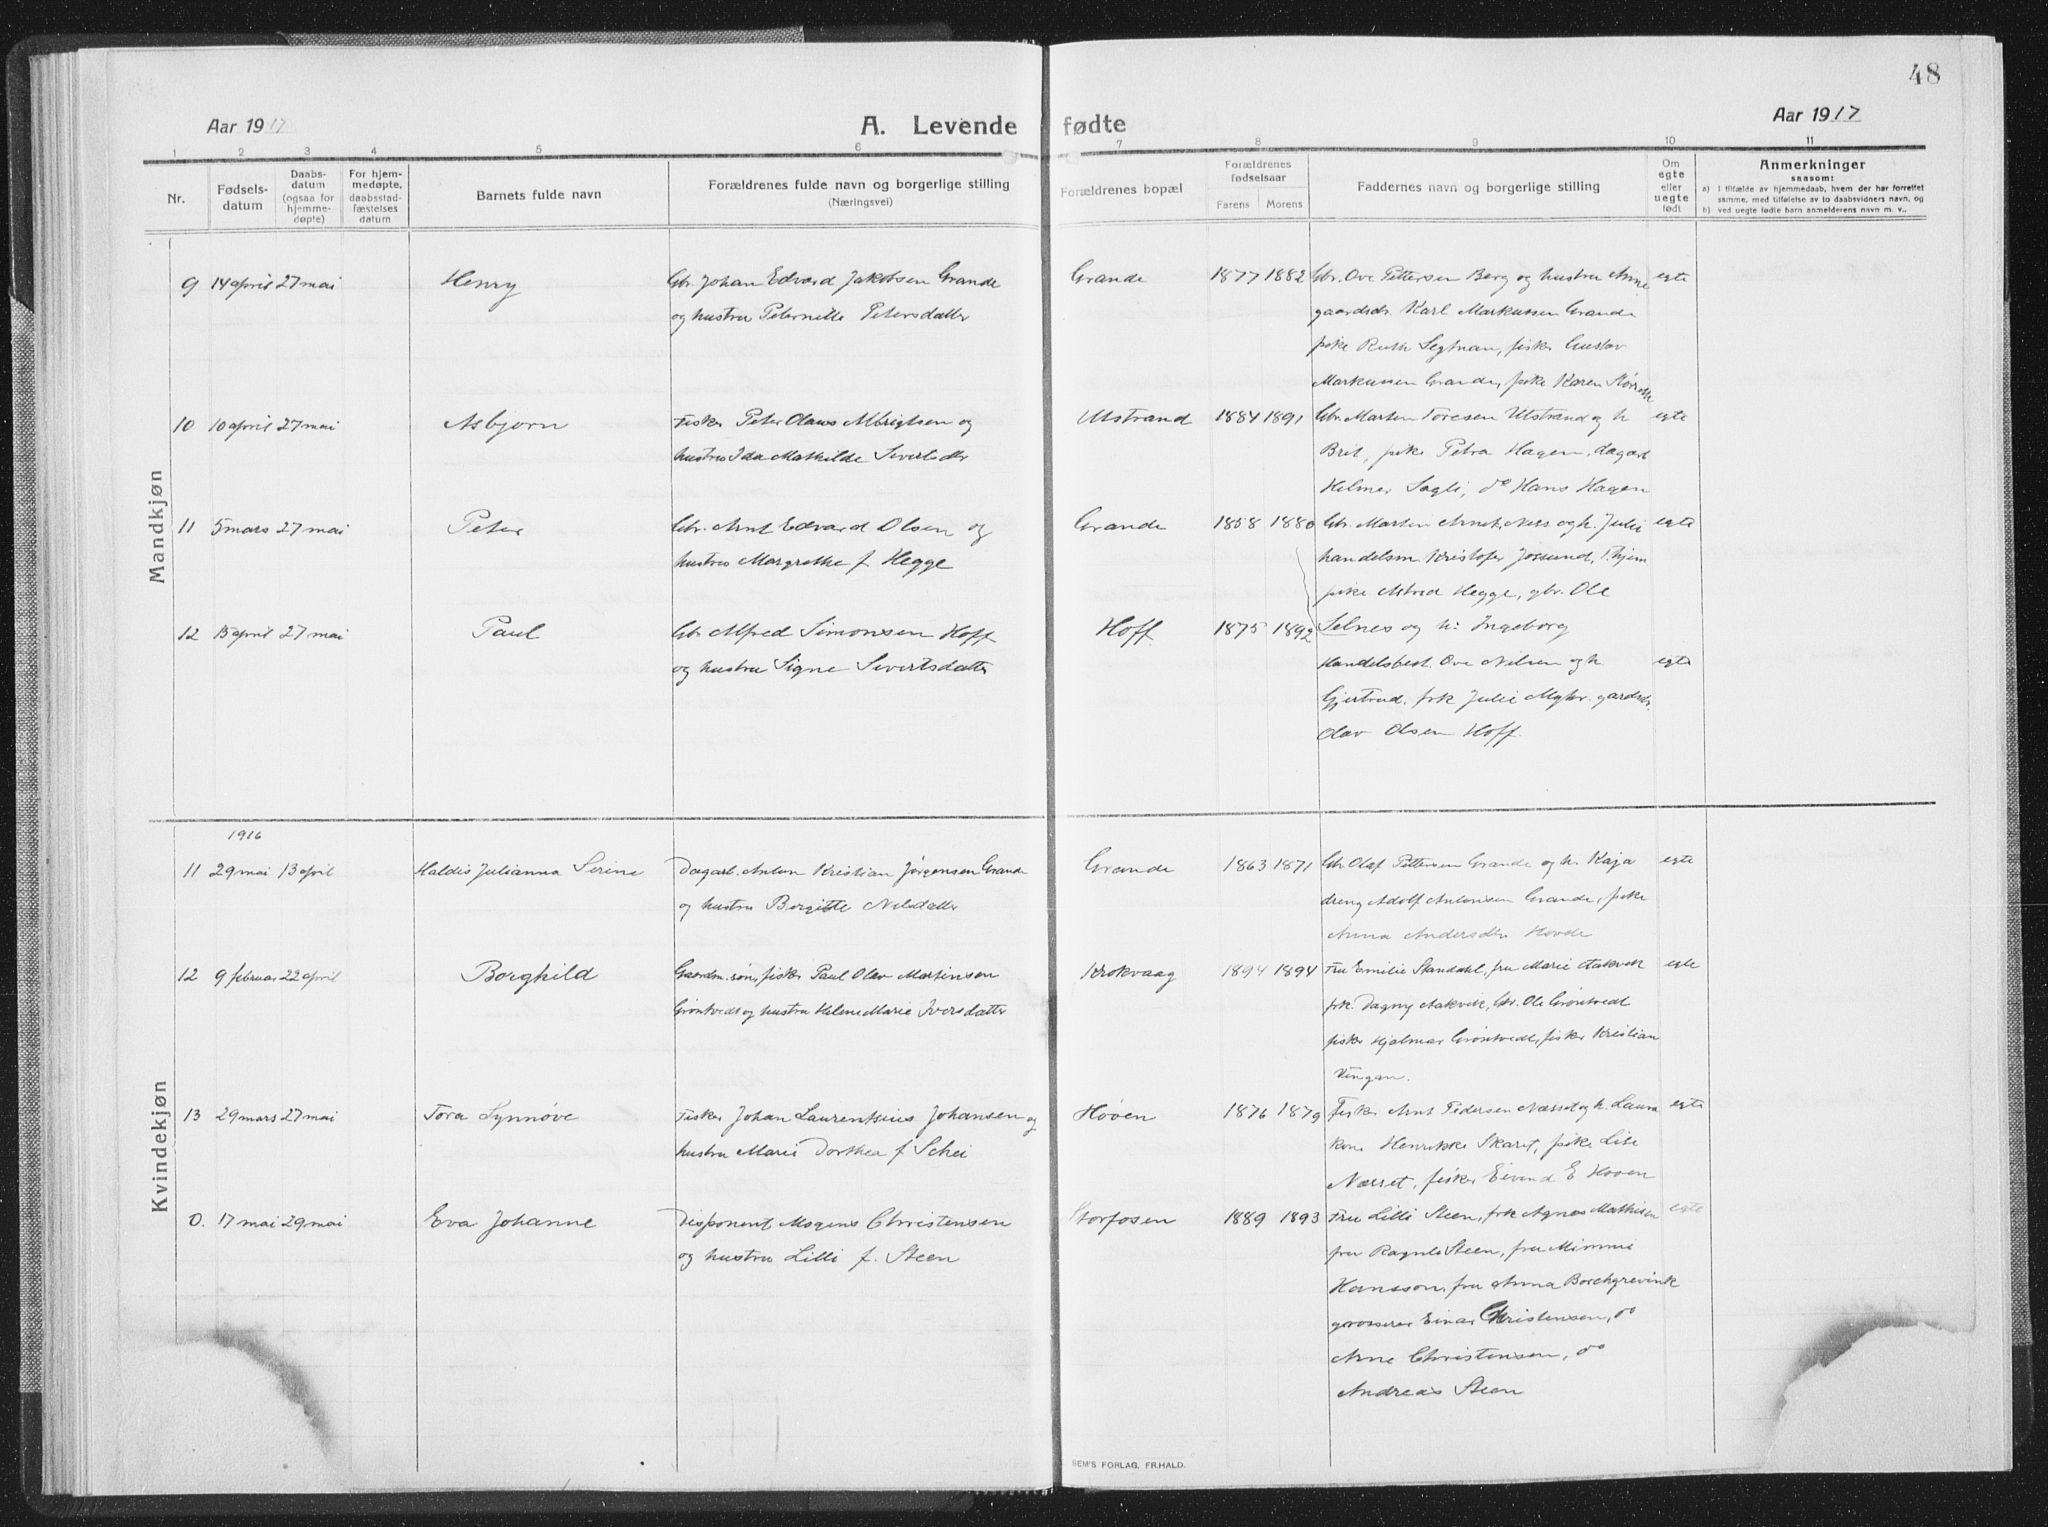 48
Aar 1917
A. Levende fødte
Aar 1917
1 2 3 4 5 6 7 8 9 10 11
Nr.
Fødsels-
datum
Daabs-
datum
(ogsaa for
hjemme-
døpte)
For hjem-
medøpte,
daabsstad-
fæstelses
datum
Barnets fulde navn
Forældrenes fulde navn og borgerlige stilling
(Næringsvei)
Forældrenes bopæl
Forældrenes
fødselsaar
Farens Morens
Faddernes navn og borgerlige stilling
Om
egte
eller
uegte
født
Anmerkninger
saasom:
a) I tilfælde av hjemmedaab, hvem der har forrettet
samme, med tilføielse av to daabsvidners navn, og
b) ved uegte fødte barn anmelderens navn m. v.,
Mandkjøn
9 14 april 27 mai Henry Gbr. Johan Edvard Jakobsen Grande
og hustru Peternille Petersdatter
Grande 1877 1882 Gbr. Ove Pettersen Berg og hustru Anne egte
gaardsdr. Karl Markussen Grande
pike Ruth Segtnan, fisker Gustav
Markussen Grande, pike Karen
10 10 april 27 mai Asbjørn Fisker Peter Olaus Albrigtsen og
hustru Ida Mathilde Sivertsdtr
Utstrand 1884 1891 Gbr. Morten Toresen Utstrand og h egte
Brit, pike Petra Hagen, dagarb
Helmer Sagli, do Hans Hagen
11 5 mars 27 mai Peter Gbr. Arnt Edvard Olsen og
hustru Margrethe f. Hegge
Grande 1858 1880 Gbr. Morten Arnet, Næss og h. Julie egte
handelsm Kristofer Jøssund,
pike Astrid Hegge, gbr. Ole
Selnes og h: Ingeborg
12 15 april 27 mai Paul Gbr Alfred Simonsen Hoff
og hustru Signe Sivertsdatter
Hoff 1875 1892
Handelsbest. Ove Nilsen og h egte
Gjertrud, frk Julie Myhr. gardsdr.
Olav Olsen Hoff.
Kvindekjøn
1916
11 29 mai 13 april Haldis Julianna Serine Dagarb. Anton Kristian Jørgensen Grande
og hustru Bergitte Nilsdatter
Grande 1863 1871 Gbr. Olaf Pettersen Grande og h. Kaja egte
dreng Adolf Antonsen Grande, pike
Anna Andersdtr Hovde
12 9 februar 22 april Borghild Gaardm.søn, fisker Paul Olav Martinsen
Grøntvedt og hustru Helene Marie Iversdatter
Krokvaag 1894 1894 Fru Emilie Standahl, fru Marie Aakvik egte
frk. Dagny Aakvik, Gbr. Ole Grøntvedt
fisker Hjalmar Grøntvedt, fisker Kristian
Vingan.
13 29 mars 27 mai Tora Synnøve Fisker Johan Laurentsius Johansen og
hustru Marie Dorthea f. Schei
Høven 1876 1879 Fisker Arnt Pedersen Næsset og h. Laura egte
kone Henrikke Skaret, pike Lise
Næsset, fisker Eivind E Hoven
0. 17 mai 29 mai Eva Johanne Disponent Mogens Christensen
og hustru Lilli f. Steen
Storfosen 1889 1893 Fru Lilli Steen, frk Agnes Mathisen egte
fru Ragnh. Steen, fru Mimmi
Hansson, fru Anna Borchgrevink
grosserer Einar Christensen, do
Arne Christensen, do
Andreas Steen
SEM'S FORLAG, FR.HALD.